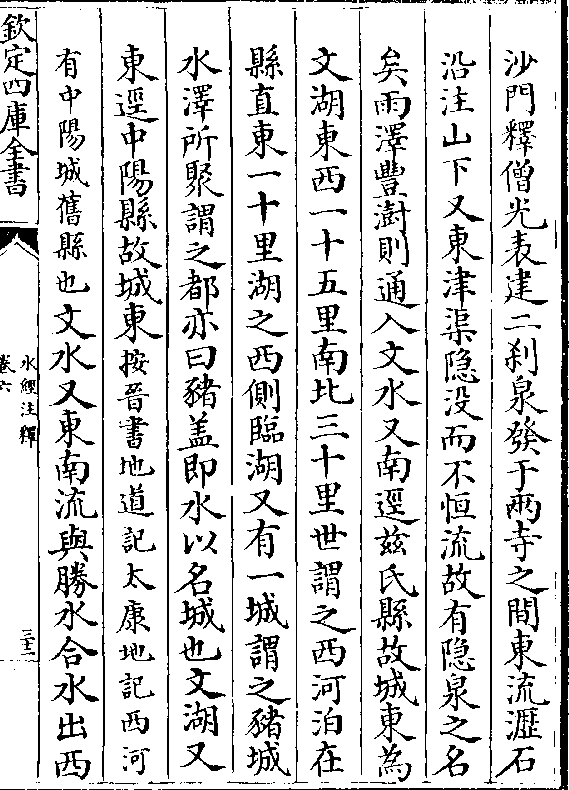 沙門釋僧光表建二刹泉發于兩寺之間東流瀝石
沿注山下又東津渠隐没而不恒流故有隐泉之名
矣雨澤豐澍則通入文水又南逕兹氏縣故城東為
文湖東西一十五里南北三十里世謂之西河泊在
縣直東一十里湖之西側臨湖又有一城謂之豬城
水澤所聚謂之都亦曰豬盖即水以名城也文湖又
東逕中陽縣故城東按晉書地道記太康地記西河
有中陽城舊縣也文水又東南流與勝水合水出西
欽定四庫全書
水經注釋
卷六
三十二